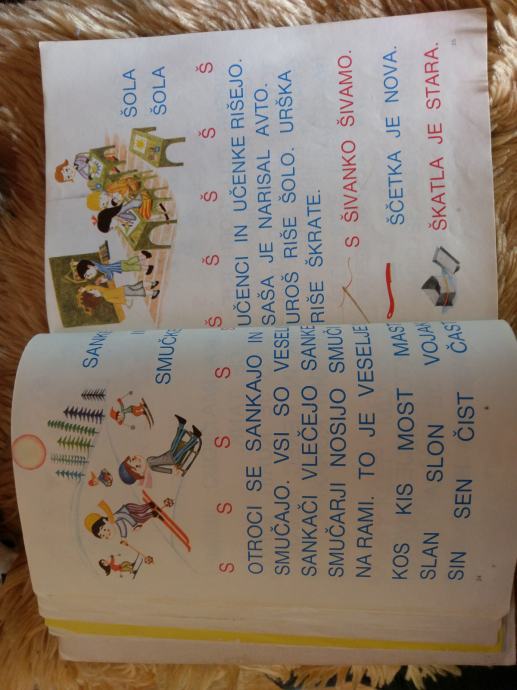 SANKE
SMUČKE
S S S S S S
OTROCI SE SANKAJO IN
SMUČAJO. VSI SO VESEL
SANKAČI VLEČEJO SANKE
SMUČARJI NOSIJO SMUČI
NA RAMI. TO JE VESELJE
KOS KIS MOST MAST
SLAN SLON VOJAK
SIN SEN ČIST ČAST
24
ŠOLA
ŠOLA
Š Š Š Š Š
UČENCI IN UČENKE RIŠEJO.
SAŠA JE NARISAL AVTO.
UROŠ RIŠE ŠOLO. URŠKA
RIŠE ŠKRATE.
S ŠIVANKO ŠIVAMO.
ŠČETKA JE NOVA.
ŠKATLA JE STARA.
25